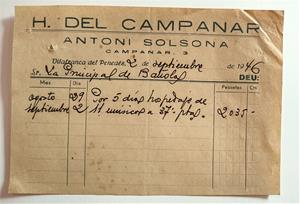 H. DEL CAMPANAR
ANTONI SOLSONA
CAMPANAR, 3
Vilafranca del Penedès, 2 de septiembre de 1946
Sr. La Principal de Badalona DEU:
Mes Dia Pessetes Cts.
agosto 29 Por 5 dias hospedaje de
septiembre 2 11 músicos a 37 - ptas. 2.035 -